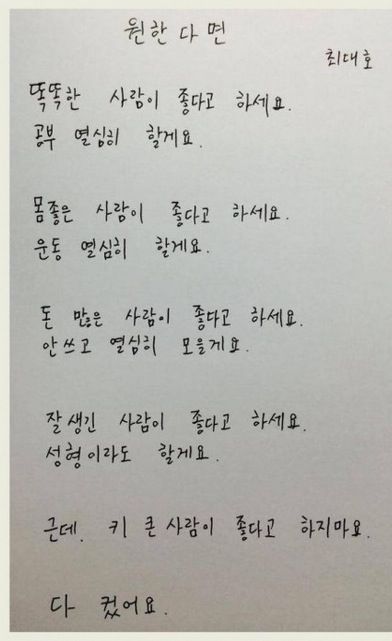 원한다면
최대호
똑똑한 사람이 좋다고 하세요.
공부 열심히 할게요.
몸좋은 사람이 좋다고 하세요.
운동 열심히 할게요.
돈 많은 사람이 좋다고 하세요.
안쓰고 열심히 모을게요.
잘생긴 사람이 좋다고 하세요.
성형이라도 할게요.
근데. 키 큰 사람이 좋다고 하지마요.
다 컸어요.